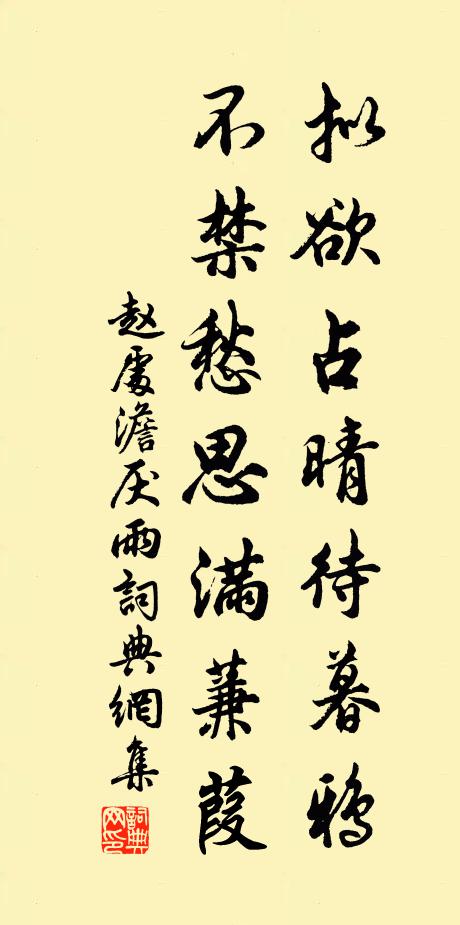 拟欲占晴待暮鸦
不禁愁思满蒹葭
赵處澹厌雨詞典網集
詞典网印